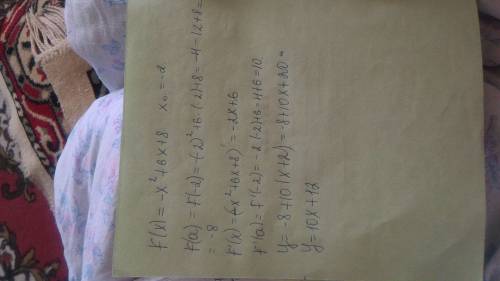 F(x) = -x² + 6x + 8   x₀ = -2
F(a) = F(-2) = -(-2)² + 6·(-2) + 8 = -4 - 12 + 8 =
= -8
F'(x) = (-x² + 6x + 8)' = -2x + 6
F'(a) = F'(-2) = -2·(-2) + 6 = 4 + 6 = 10
y = -8 + 10(x + 2) = -8 + 10x + 20 =
y = 10x + 12